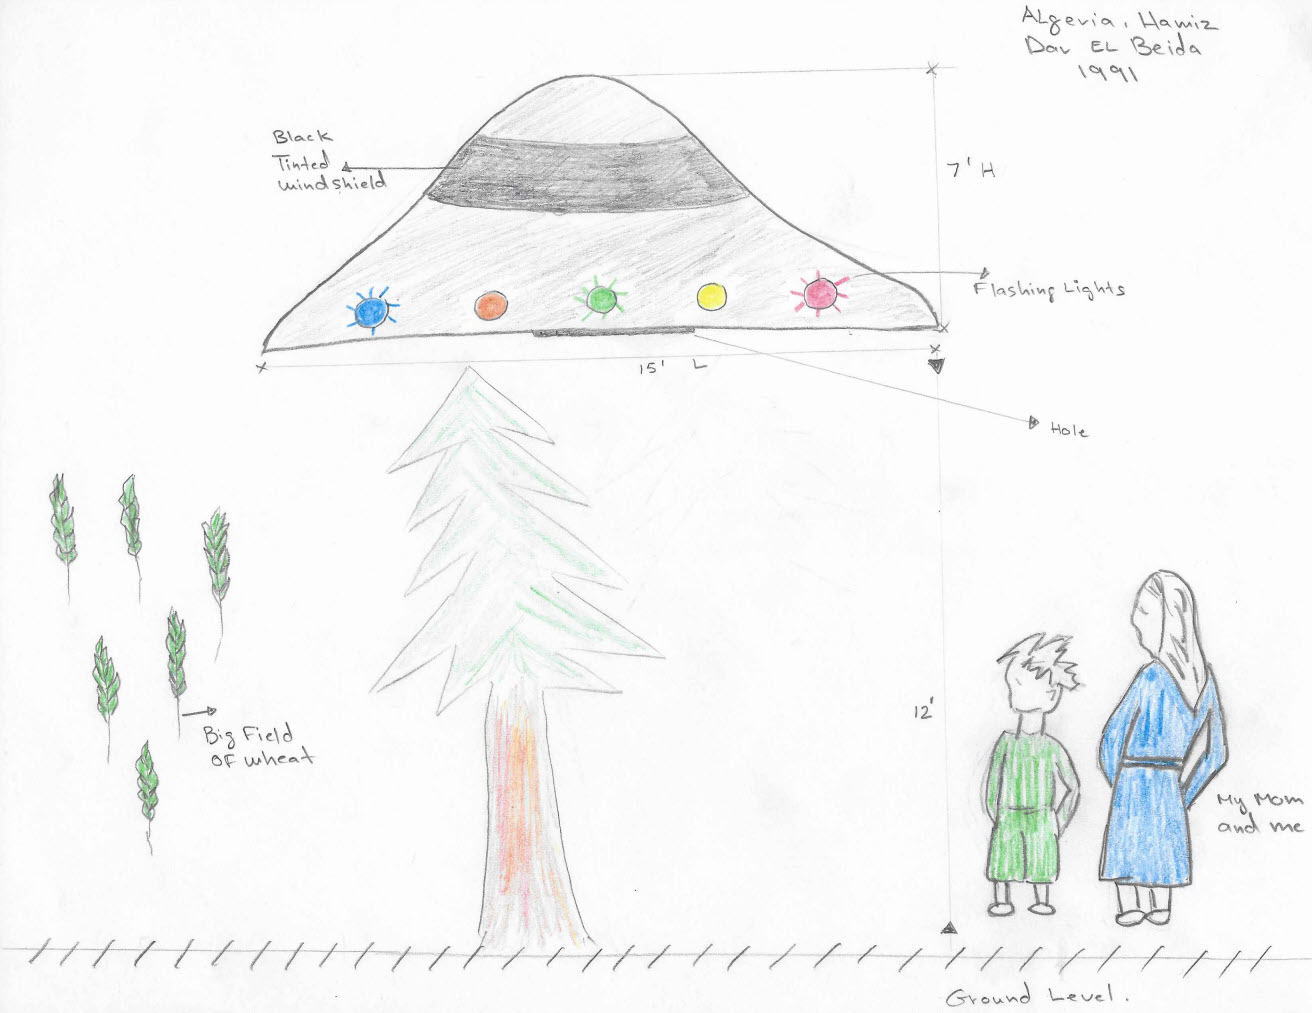 Algeria, Hamiz
Dar EL Beida
1991
Black
Tinted
windshield
7' H
Flashing Lights
15' L
Hole
12'
Big Field
OF wheat
My Mom
and me
Ground Level.